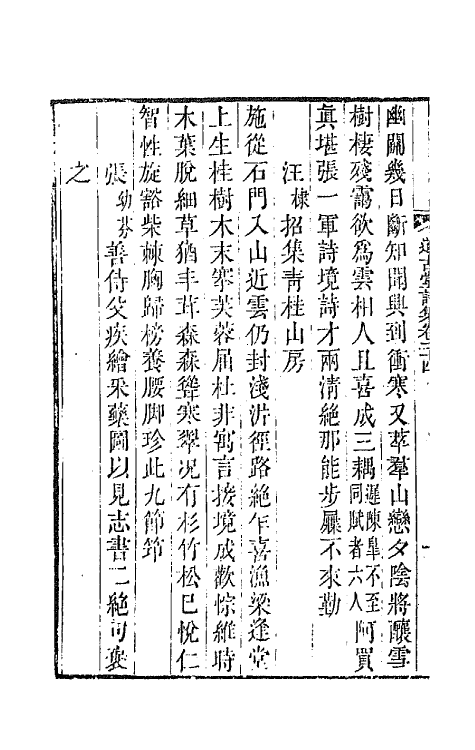 幽關幾日斷知聞興到衝寒又萃羣山戀夕陰將釀雪
樹棲殘靄欲為雲相人丑喜成三耦遲陳臯不至同賦者六人阿買
眞堪張一軍詩境詩才兩清絶那能步屧不來勤
汪棣招集靑桂山房
施從石門入山近雲仍封淺沜徑路絶乍喜漁梁逢堂
上生桂樹木末搴芙蓉屈杜非寓言接境成歡悰維時
木葉脫細草猶丰茸森森聳寒翠况有杉竹松已悅仁
智性旋豁柴棘胸歸榜養腰脚珍此九節筇
張幼芬善侍父疾繪采藥圖以見志書二絶句褎
之